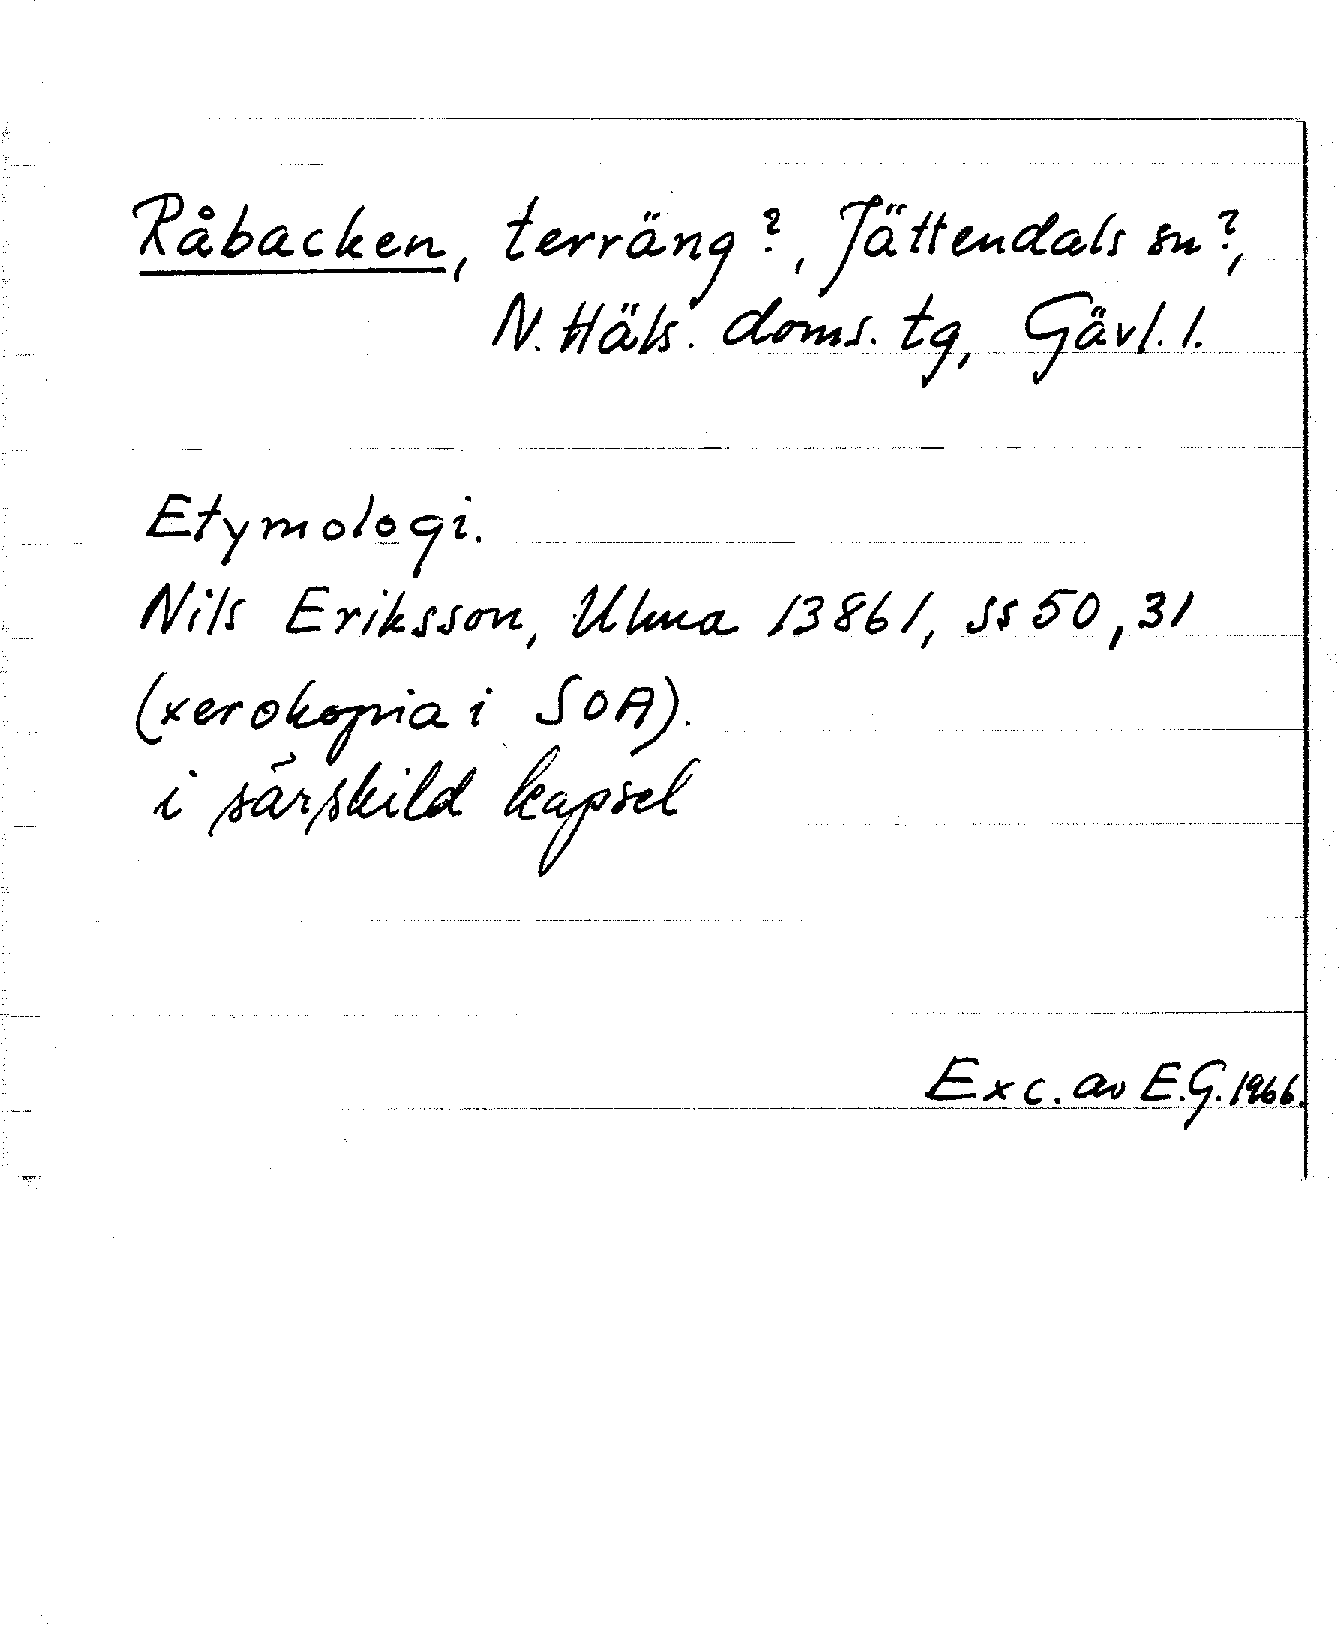 Råbacken, terräng?, Jättendals sn?,
N. Häls. doms. tg, Gävl. l.
Etymologi.
Nils Eriksson, Ulma 13861, ss 50, 31
(xerokopia i SOA).
i särskild kapsel
Exc. av E.G. 1966.